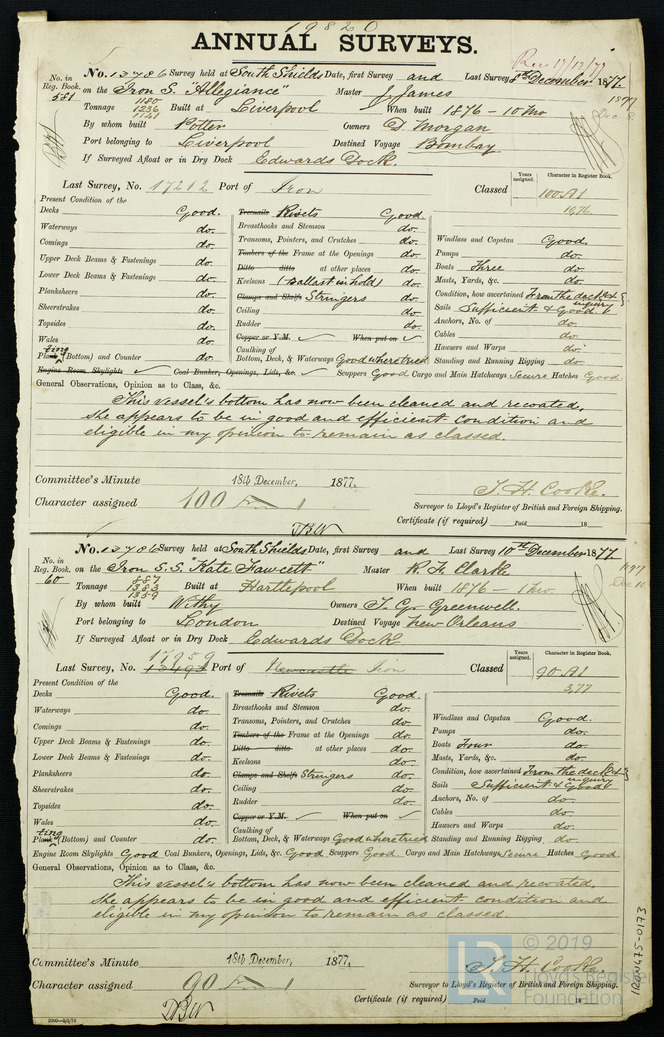 19820
ANNUAL SURVEYS.
Rec 17/12/77
No. in Reg. Book. 581
No. 13786 Survey held at South Shields Date, first Survey and Last Survey 8th December 1877.
on the Iron S. "Allegiance" Master J. James
Tonnage 1180 1236 1141 Built at Liverpool When built 1876 - 10 Mo
By whom built Potter Owners D Morgan
Port belonging to Liverpool Destined Voyage Bombay
If Surveyed Afloat or in Dry Dock Edwards Dock.
Years assigned. Character in Register Book.
Last Survey, No. 17212 Port of Iron Classed 100 A1
1876
Present Condition of the
Decks Good.
Waterways do.
Comings do.
Upper Deck Beams & Fastenings do.
Lower Deck Beams & Fastenings do.
Planksheers do.
Sheerstrakes do.
Topsides do.
Wales do.
Plating (Bottom) and Counter do.
Treenails Rivets Good
Breasthooks and Stemson do.
Transoms, Pointers, and Crutches do.
Timbers of the Frame at the Openings do.
Ditto ditto at other places do.
Keelsons (Ballast in hold) do.
Clamps and Shelfs Stringers do.
Ceiling do.
Rudder do.
Copper or Y.M. When put on
Caulking of
Bottom, Deck, & Waterways Good where tried
Windlass and Capstan Good
Pumps do.
Boats Three do.
Masts, Yards, &c. do.
Condition, how ascertained From the deck & inquiry
Sails Sufficient & Good
Anchors, No. of do.
Cables do.
Hawsers and Warps do.
Standing and Running Rigging do.
Engine Room Skylights Coal Bunker, Openings, Lids, &c. Scuppers Good Cargo and Main Hatchways Secure Hatches Good
General Observations, Opinion as to Class, &c.
This vessel's bottom has now been cleaned and recoated.
She appears to be in good and efficient condition and
eligible in my opinion to remain as classed.
Committee's Minute 18th December, 1877.
Character assigned 100 A 1
T. H. Cooke.
Surveyor to Lloyd's Register of British and Foreign Shipping.
Certificate (if required) Paid 18
No. in Reg. Book. 60
No. 13786 Survey held at South Shields Date, first Survey and Last Survey 10th December 1877
on the Iron S.S. "Kate Fawcett" Master R. F. Clarke
Tonnage 887 1383 1359 Built at Hartlepool When built 1876 - 1 mo.
By whom built Withy Owners T. G. Greenwell.
Port belonging to London Destined Voyage New Orleans
If Surveyed Afloat or in Dry Dock Edwards Dock
Years assigned. Character in Register Book.
17959
Last Survey, No. Port of Newcastle Iron Classed 90 A1
3,77
Present Condition of the
Decks Good.
Waterways do.
Comings do.
Upper Deck Beams & Fastenings do.
Lower Deck Beams & Fastenings do.
Planksheers do.
Sheerstrakes do.
Topsides do.
Wales do.
Plating (Bottom) and Counter do.
Treenails Rivets Good.
Breasthooks and Stemson do.
Transoms, Pointers, and Crutches do.
Timbers of the Frame at the Openings do.
Ditto ditto at other places do.
Keelsons do.
Clamps and Shelfs Stringers do.
Ceiling do.
Rudder do.
Copper or Y.M. When put on
Caulking of
Bottom, Deck, & Waterways Good where tried
Windlass and Capstan Good.
Pumps do.
Boats Four do.
Masts, Yards, &c. do.
Condition, how ascertained From the deck & inquiry
Sails Sufficient & Good
Anchors, No. of do.
Cables do.
Hawsers and Warps do.
Standing and Running Rigging do.
Engine Room Skylights Good Coal Bunkers, Openings, Lids, &c. Good Scuppers Good. Cargo and Main Hatchways, Secure Hatches Good
General Observations, Opinion as to Class, &c.
This vessel's bottom has now been cleaned and recoated.
She appears to be in good and efficient condition and
eligible in my opinion to remain as classed.
Committee's Minute 18th December, 1877.
Character assigned 90 A 1
T. H. Cooke.
Surveyor to Lloyd's Register of British and Foreign Shipping.
Certificate (if required) Paid 18
IRON475-0173
LR
© 2019
Lloyd's Register
Foundation